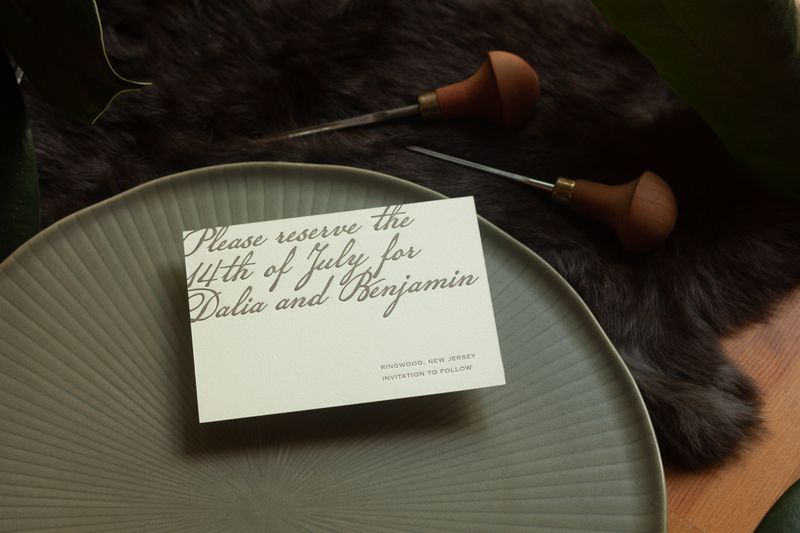 Please reserve the
14th of July for
Dalia and Benjamin
RINGWOOD, NEW JERSEY
INVITATION TO FOLLOW